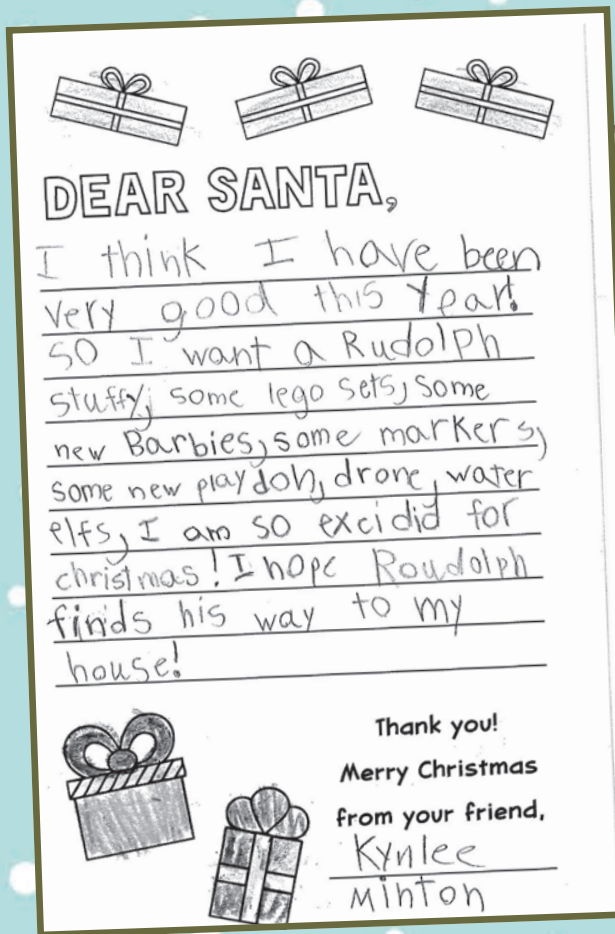 DEAR SANTA,
I think I have been
very good this Year!
SO I want a Rudolph
stuffy, some lego sets, some
new Barbies, some markers,
some new playdoh, drone, water
elfs, I am so excidid for
christmas! I hope Roudolph
finds his way to my
house!
Thank you!
Merry Christmas
from your friend,
Kynlee
Minton